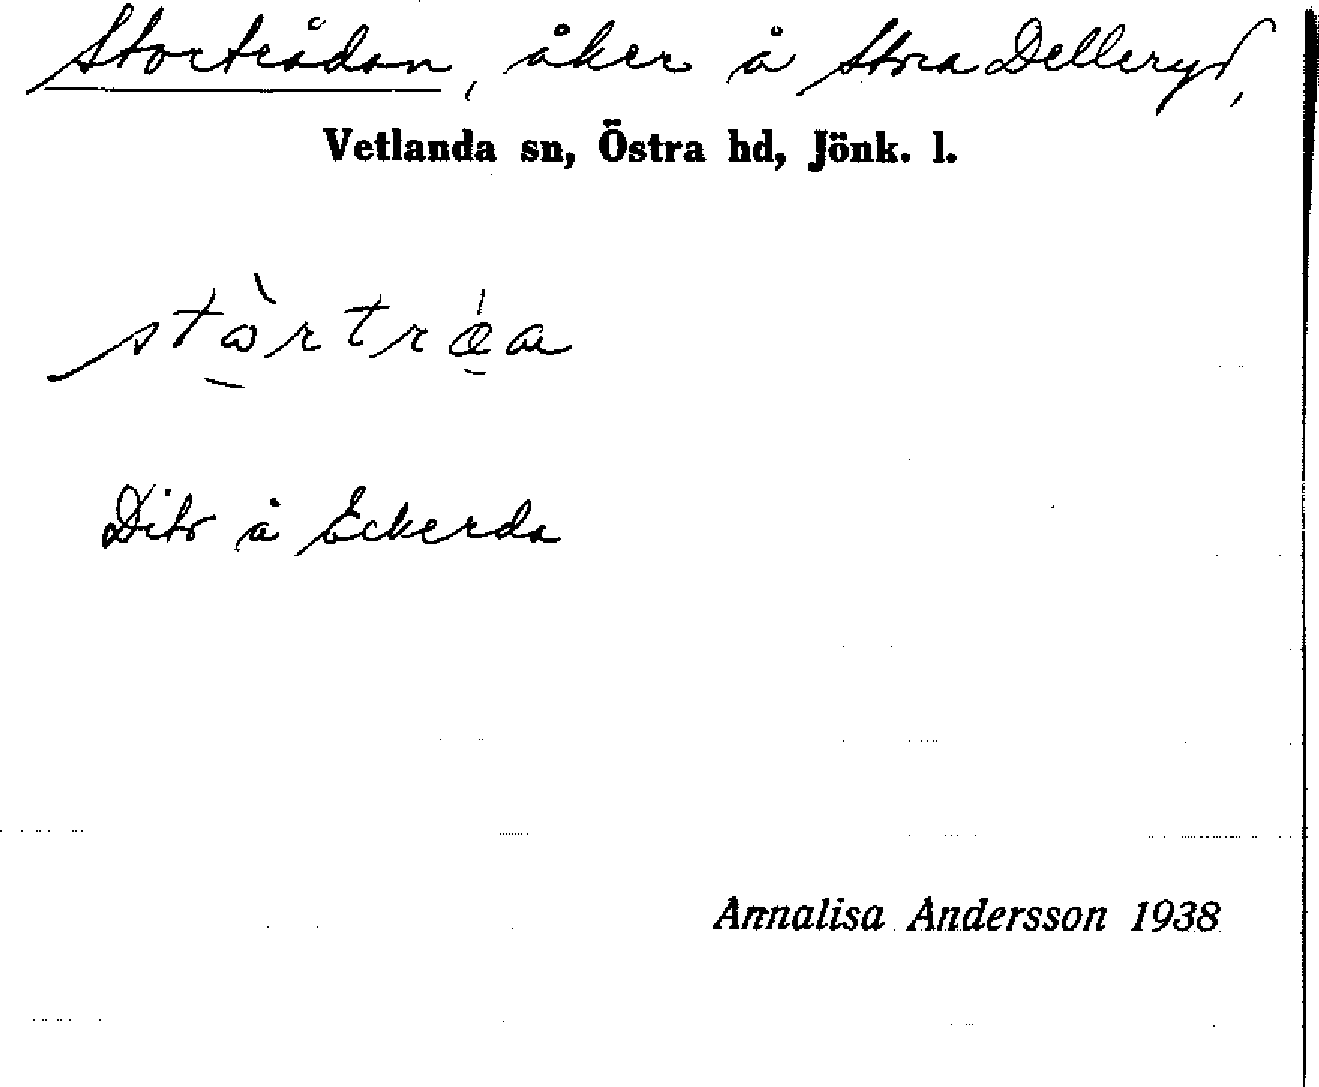 Stortrådan, åker å Stora Delleryd,
Vetlanda sn, Östra hd, Jönk. l.
Dito å Eckerda
Annalisa Andersson 1938